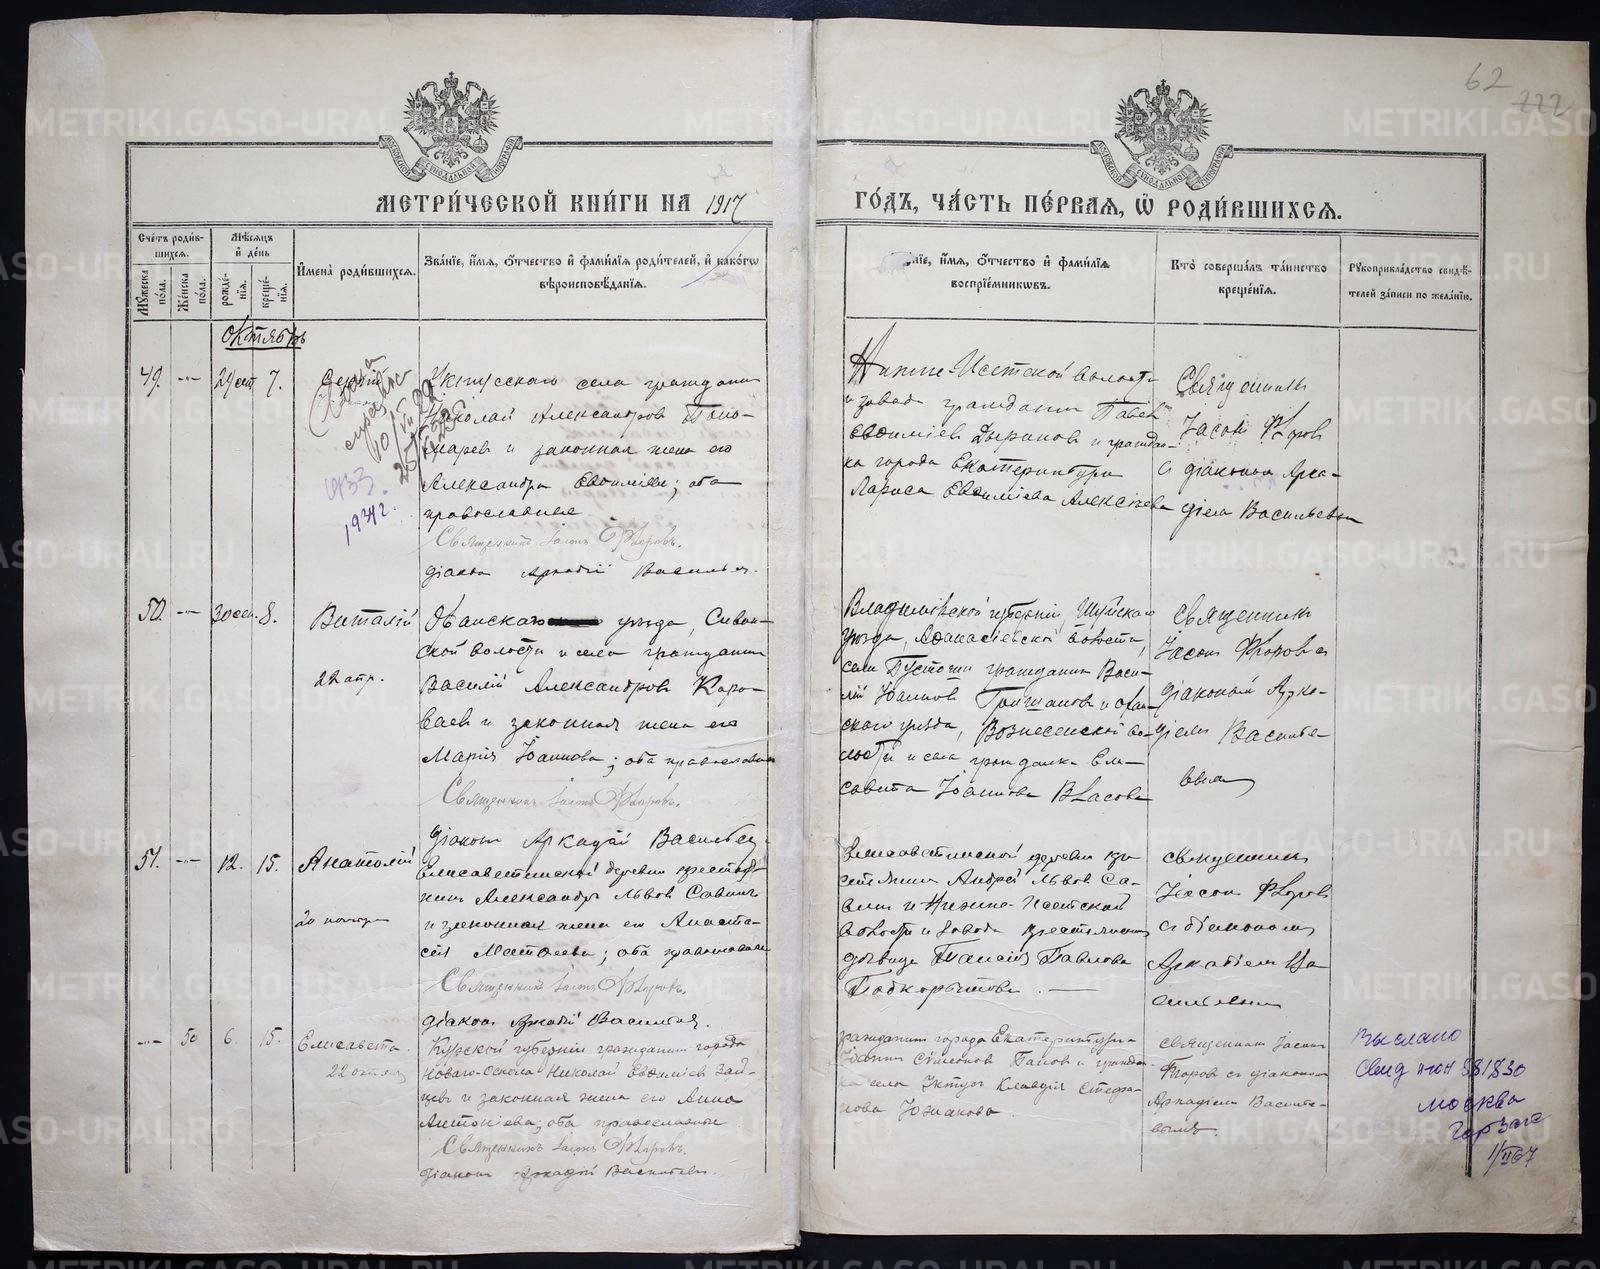 62
222
МЕТРИ́ЧЕСКОЙ КНИ́ГИ НА 1917
ГО́ДЪ, ЧА́СТЬ ПЕ́РВАЯ, Ѡ РОДИ́ВШИХСЯ.
Сче́тъ роди́в-
шихся.
Мѣ́сяцъ
и҆ де́нь
Мꙋ́жеска
по́ла.
Же́нска
по́ла.
рожде́-
нїѧ.
креще́-
нїѧ.
И҆мена̀ роди́вшихся.
Зва́нїе, и҆́мя, ѻ҆́тчество и҆ фами́лїя роди́телей, и҆ како́гѡ
вѣроисповѣ́данїя.
нїе, и҆́мя, ѻ҆́тчество и҆ фами́лїя
воспрїе́мникѡвъ.
Кто̀ соверша́лъ та́инство
креще́нїя.
Рꙋкоприкла́дство свидѣ́-
телей за́писи по жела́нїю.
Октябрь
49. -"- 29 сент 7. Сергій
Уктусскаго села гражданин
Николай Александров Поно-
марев и законная жена его
Александра Евфиміева; оба
православные
Священник Іасон Флоров.
діакон Аркадій Васильев.
1933.
1934г.
Нижне-Исетской волости
и завода гражданин Павел
Евфиміев Дырин и граждан-
ка города Екатеринбурга
Лариса Евфиміева Алексеева
Священник
Іасон Флоров
с діаконом Арка-
діем Васильевым
50. -"- 30 сен. 8. Виталій
22 апр.
Оханскаго уезда, Сивин-
ской волости и села гражданин
Василій Александров Каро-
ваев и законная жена его
Марія Іоаннова; оба православные
Священник Іасон Флоров.
діакон Аркадій Васильев.
Владимірской губерніи, Шуйскаго
уезда, Афанасіевской волости,
села Пустоши гражданин Васи-
лій Іоаннов Гришанов и Охан-
скаго уезда, Вознесенской во-
лости и села гражданка Ели-
савета Іоаннова Власова
Священник
Іасон Флоров с
діаконом Арка-
діем Василье-
вым
51. -"- 12. 15. Анатолій
20 ноября
Елисаветинской деревни крестья-
нин Александр Львов Савин
и законная жена его Анаста-
сія Матфеева; оба православные
Священник Іасон Флоров.
діакон Аркадій Васильев.
Елисаветинской деревни кре-
стьянин Андрей Львов Са-
вин и Нижне-Исетской
волости и завода крестьянская
девица Таисія Павлова
Подкорытова.
священник
Іасон Флоров
с діаконом
Аркадіем Ва-
сильевым
-"- 50 6. 15. Елисавета
22 октяб
Курской губерніи гражданин города
Новаго-Оскола Николай Евфиміев Зай-
цев и законная жена его Анна
Антоніева; оба православные
Священник Іасон Флоров.
діакон Аркадій Васильев.
гражданин города Екатеринбурга
Іоанн Симеонов Панов и граждан-
ка села Уктус Клавдія Стефа-
нова Южакова.
священник Іасон
Флоров с діаконом
Аркадіем Василье-
вым.
Выслано
Москва
1/II 67